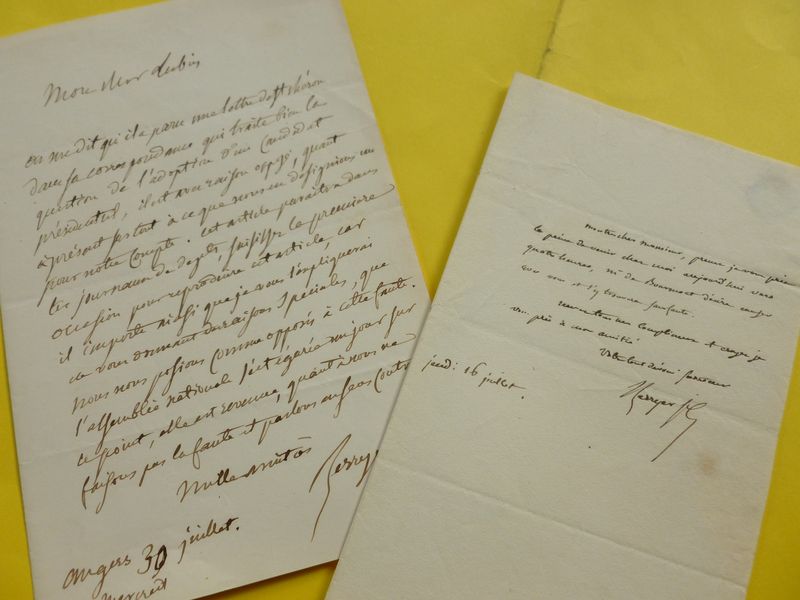 Mon cher Lubis
on me dit qu'il a paru une lettre de Mr
dans sa correspondance qui traite bien la
question de l'adoption d'un candidat
présidentiel, il est avec raison opposé, quant
à présent surtout à ce que nous en désignions un
pour notre compte. cet article paraîtra dans
les journaux de dépts, saisissez la première
occasion pour reproduire cet article, car
il importe ainsi que je vous l'expliquerai
en vous donnant des raisons spéciales, que
nous nous posions comme opposés à cette faute.
l'assemblée nationale s'est égarée un jour sur
ce point, elle est revenue, quant à nous ne
faisons pas la faute et parlons en sens contr
Mille amitiés
Berryer
angers 30 juillet.
Mercredi
mon cher monsieur, prenez je vous prie
la peine de venir chez moi aujourd'hui vers
quatre heures, mr de Bourmont désire causer
avec vous et s'y trouvera
mes complimens et croyez je
vous prie à mon amitié
votre tout dévoué serviteur
Berryer
jeudi 16 juillet.